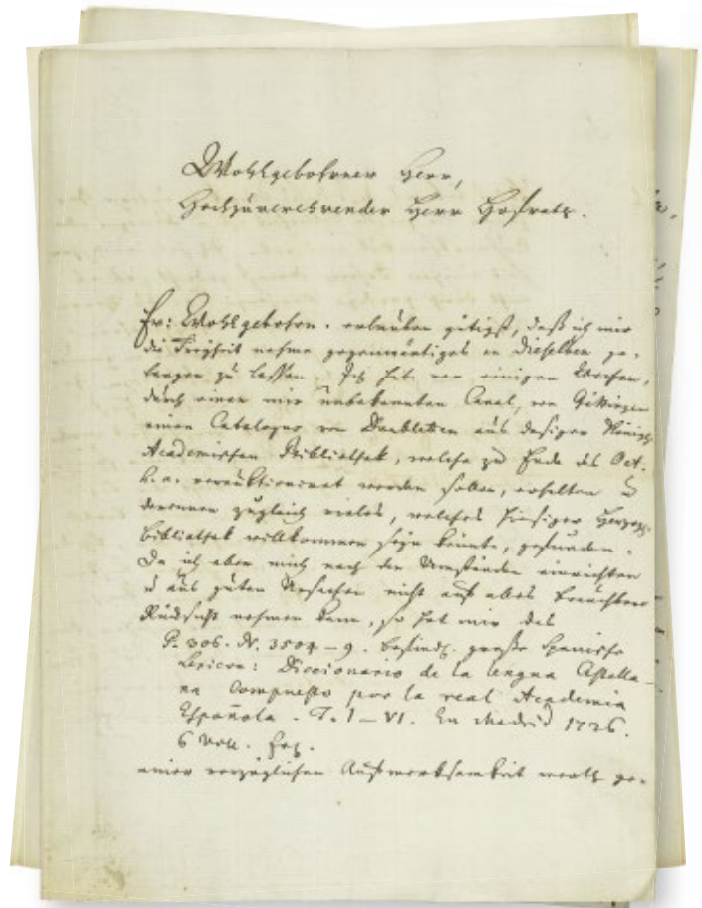 Wohlgebohrner Herr,
Hochzuverehrender Herr Hofrath.
Ew: Wohlgebohrn. erlauben gütigst, daß ich mir
die Freyheit nehme gegenwärtiges an Dieselben ge-
langen zu lassen. Ich habe vor einigen Wochen,
durch einen mir unbekannten Canal, von Göttingen
einen Catalogus von Doubletten aus dasiger Königl.
Academischen Bibliothek, welche zu Ende des Oct.
h. a. verauktioniret werden sollen, erhalten u
darinnen zugleich vieles, welches hiesiger Herzogl.
Bibliothek willkommen seyn könnte, gefunden.
Da ich aber mich nach den Umständen einrichten
u aus guten Ursachen nicht auf alles brauchbare
Rücksicht nehmen kann, so hat mir das
P. 306. N. 3504-9. befindl. große Spanische
Lexicon: Diccionario de la lengua Castella-
na compuesto por la real Academia
Española. T. I-VI. En Madrid 1726.
6 Voll.
einer vorzüglichen Aufmerksamkeit werth ge-